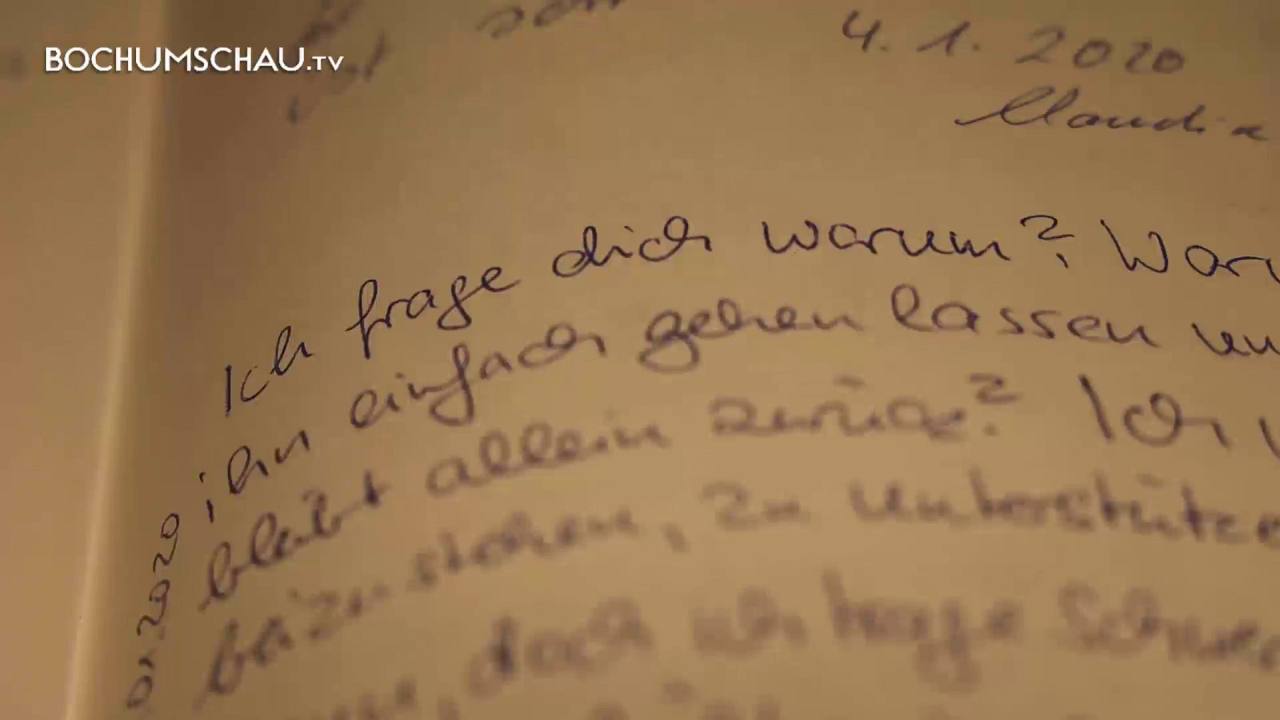 BOCHUMSCHAU.TV
4.1.2020
Claudia
Ich frage dich warum? War
ihn einfach gehen lassen un
bleibt allein zurück? Ich
beizustehen, zu unterstütze
doch ich trage Schwe
01.2020